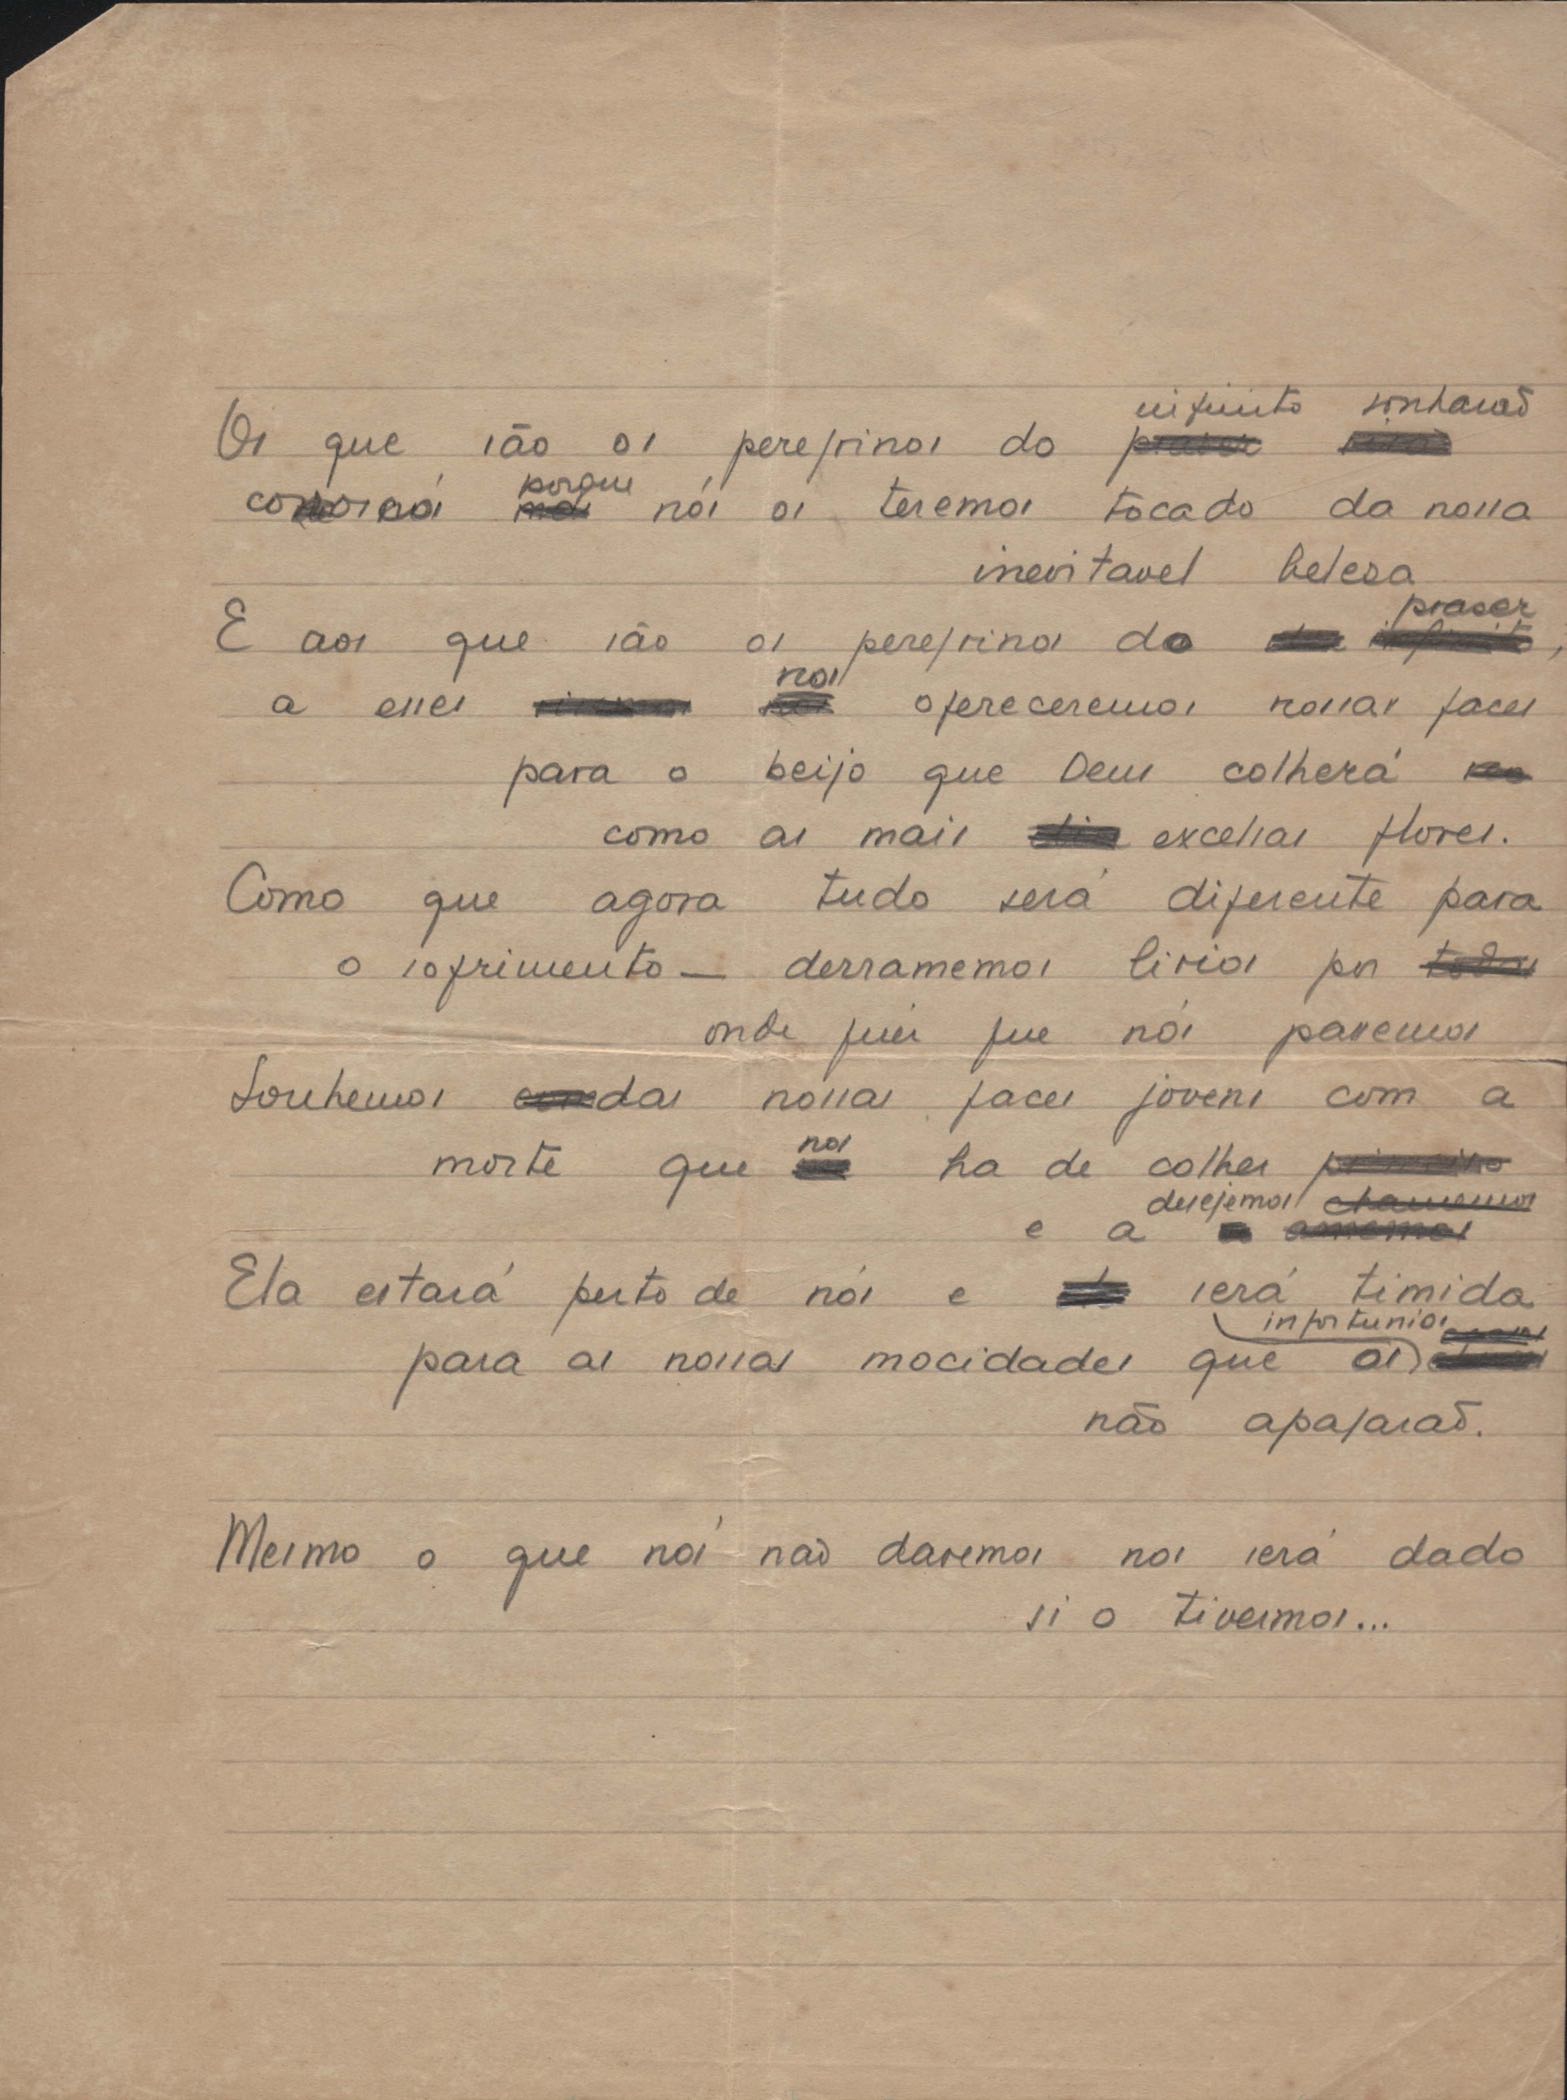 infinito sonharaõ
Os que são os peregrinos do
comnosco porque nós os teremos tocado da nossa
inevitavel belesa
praser
E aos que são os peregrinos do ,
a esses nos ofereceremos nossas faces
para o beijo que Deus colherá
como as mais excelsas flores.
Como que agora tudo será diferente para
o sofrimento — derramemos lirios por
onde quer que nós passemos
Sonhemos das nossas faces jovens com a
morte que nos ha de colher
e a desejemos
Ela estará perto de nós e será timida
para as nossas mocidades que os infortunios
não apagaraõ.
Mesmo o que nós naõ daremos nos será dado
si o tivermos...